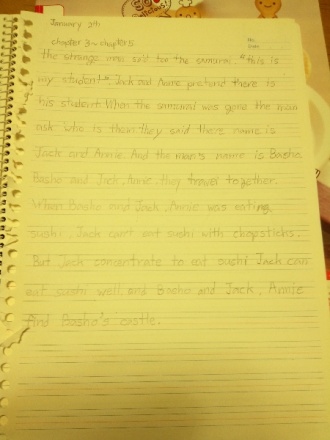 January 9th
chapter 3 ~ chapter 5
No.
Date
the strange man said to the samurai. "this is
my student". Jack and Annie pretend there is
his student. When the samurai was gone the man
ask who is them they said there name is
Jack and Annie. And the man's name is Basho.
Basho and Jack, Annie, they travel together.
When Basho and Jack, Annie was eating
sushi, Jack can't eat sushi with chopsticks.
But Jack concentrate to eat sushi Jack can
eat sushi well. and Basho and Jack, Annie
find Basho's castle.